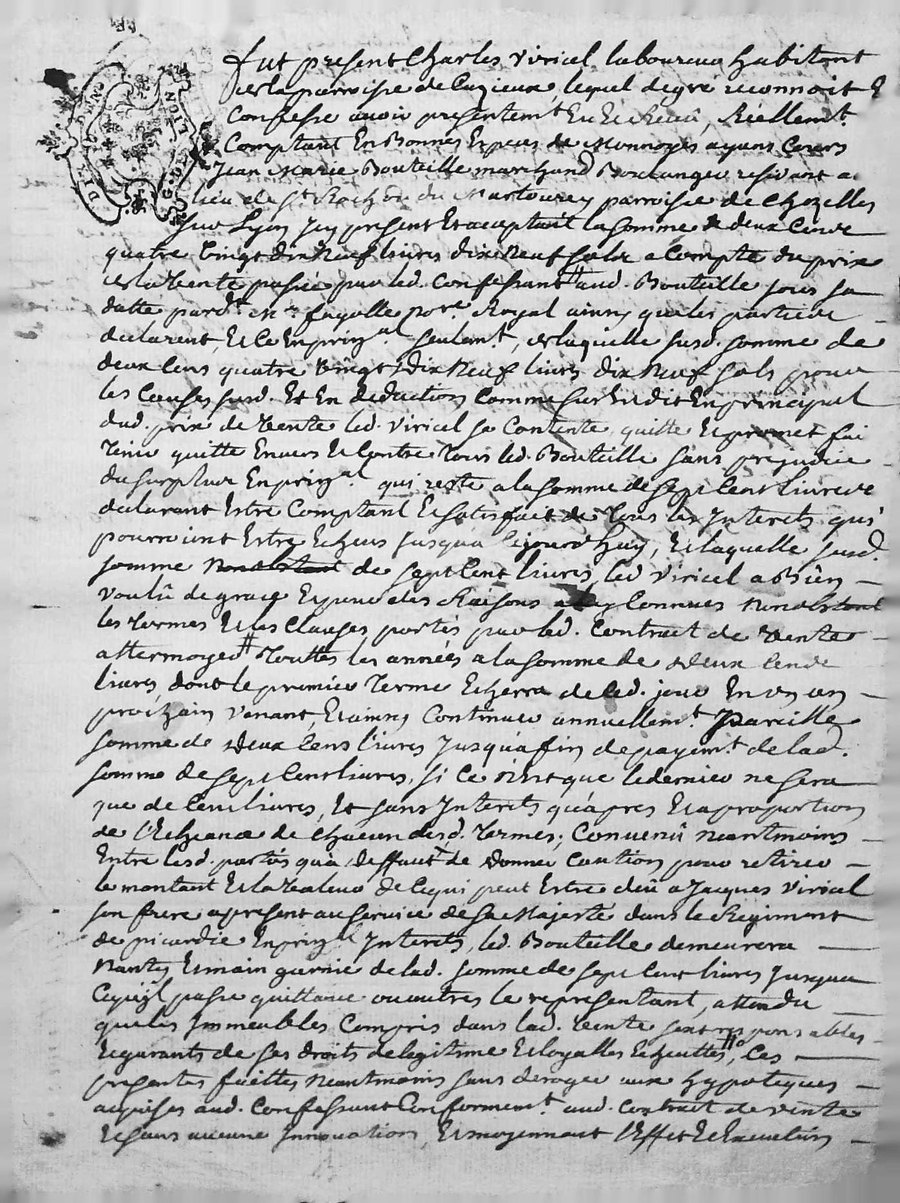 DIX DEN. G. DE LION
fut present Charles viricel laboureur habitant
de la parroisse de lequel degré reconnoit &
Confesse avoir presentemt Eu et Receu, Réellemt
Comptant En Bonnes Especes de Monnoyes ayans Cours
Jean Marie Bouteille marchand Boulanger residant a
lieu de St Roch parroisse de Chozelles
sur Lyon Icy present et acceptant la somme de deux Cens
quatre vingt dix Neuf livres dix Neuf sols a Compte du prix
de la vente passée par led. Confessant aud. Bouteille sous sa
datte pardt me fayolle nore Royal ainsy que les parties
declarent, et ce En prinal seulemt, de laquelle susd. somme de
deux Cens quatre vingt dix Neuf livres dix Neuf sols pour
les Causes susd. Et En deduction Comme sus Est dit En principal
dud. prix de vente led. viricel se Contente, quitte et promet fai
tenir quitte Envers et Contre tous led. Bouteille sans prejudice
du surplus En prinal qui reste a la somme de sept Cent livres
declarant Estre Comptant et satisfait de tous les Interets qui
pourroient Estre Echeus Jusqua ce jourd'huy, et laquelle susd.
somme nonobstant de sept Cent livres, led. viricel a Bien
voulû de grace et pour des Raisons a luy Connues nonobstant
les termes et les Clauses portés par led. Contract de vente
attermoyer touttes les années a la somme de deux Cens
livres, dont le premier terme Echerra de ced. jour En un an
prochain venant, et ainsy Continuer annuellemt pareille
somme de deux Cens livres Jusqu'a fin de payemt de lad.
somme de sept Cent livres, si ce n'est que le dernier ne sera
que de Cent livres, Et sans Interets qu'apres et a proportion
de l'Echeance de Chacun desd. termes; Convenû neantmoins
Entre lesd. parties qu'a deffaut de donner Caution pour retirer
le montant et la valeur de Ce qui peut Estre dêû a Jacques viricel
son frere a present au service de sa Majesté dans le Regiment
de picardie En prinal Interets, led. Bouteille demeurera
Nanty et main garnie de lad. somme de sept Cent livres Jusqua
Ce qu'il passe quittance ou autres le representant, attendu
que les Immeubles Compris dans lad. vente sont responsables
et garants de ses droits de legitime et loyalles Echeuttes, Ces
presentes faittes neantmoins sans deroger aux hypoteques
acquises aud. Confessant Conformemt aud. contrat de vente
et sans aucune Innovation, et moyennant l'Effet et Execution